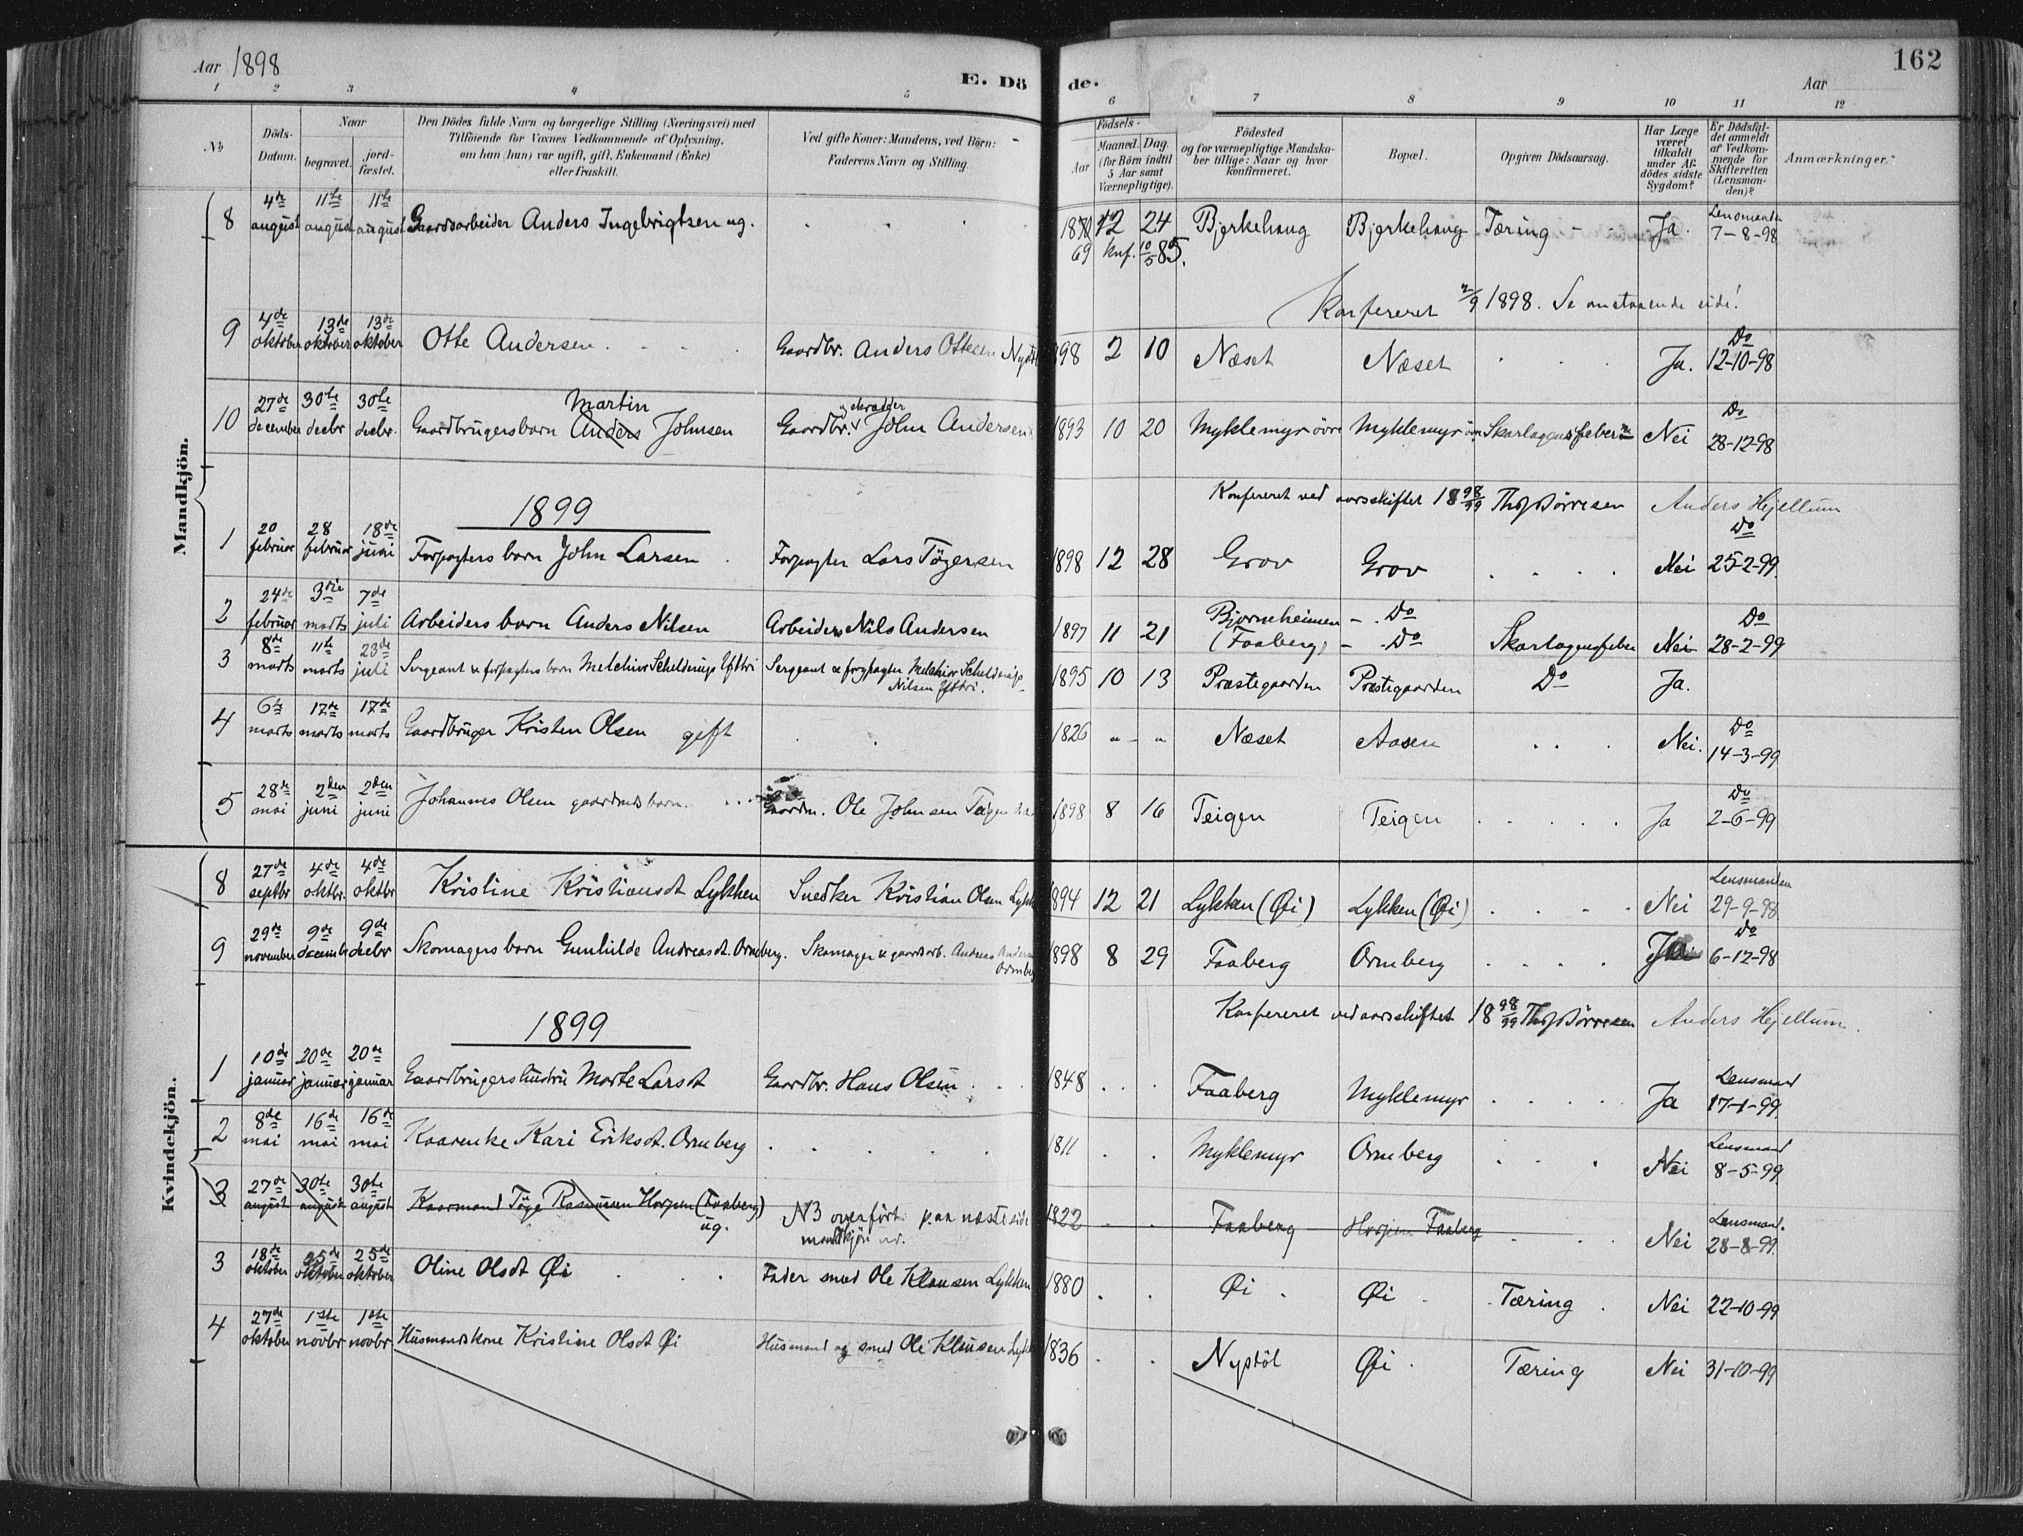 162
Aar 1898
E. Döde.
Aar
1 2 3 4 5 6 7 8 9 10 11 12
No
Döds-Datum.
Naar
begravet.
jord-fæstet.
Den Dödes fulde Navn og borgerlige Stilling (Næringsvei) med
Tilföiende for Voxnes Vedkommende af Oplysning,
om han (hun) var ugift, gift, Enkemand (Enke)
eller fraskilt.
Ved gifte Koner: Mandens, ved Börn:
Faderens Navn og Stilling.
Födsels-
Aar
Maaned. Dag.
(for Börn indtil
5 Aar samt
Værnepligtige).
Födested
og for værnepligtige Mandska-
ber tillige: Naar og hvor
konfirmeret.
Bopæl.
Opgiven Dödsaarsag.
Har Læge
været
tilkaldt
under Af-
dödes sidste
Sygdom?
Er Dödsfal-
det anmeldt
af Vedkom-
mende for
Skifteretten
(Lensman-
den)?
Anmærkninger.
Mandkjön.
8 4de august 11te august 11te august Gaardsarbeider Anders Ingebrigtsen ug. 69 12 24 Bjerkehaug Bjerkehaug Tæring Ja. Lensmanden 7-8-98
knf. 10/5 85.
Konfereret 2/9 1898. Se omstaaende side!
9 4de oktober 13de oktober 13de oktober Otte Andersen Gaardbr. Anders Ottesen 1898 2 10 Næset Næset Ja. Do 12-10-98
10 27de december 30te decbr 30te decbr. Gaardbrugersbarn Anders Martin Johnsen Gaardbr. og skrædder John Andersen 1893 10 20 Myklemyr övre Myklemyr Skarlagensfeber Nei Do 28-12-98
Konfereret ved aarsskiftet 1898/99 Th Börresen Anders Hjellum
1899
1 20 februar 28 februar 18de juni Forpagters barn John Larsen Forpagter Lars Tögersen 1898 12 28 Grov Grov Nei Do 25-2-99
2 24de februar 3die marts 7de juli Arbeiders barn Anders Nilsen Arbeider Nils Andersen 1897 11 21 Bjørneheimen (Faaberg) Do Do Skarlagensfeber Nei Do 28-2-99
3 8de marts 11te marts 23de juli Sergeant & forpagters barn Melchior Schelderup Sergeant & forpagter Melchior Schelderup Nilsen 1895 10 13 Præstegaarden Præstegaarden Do Ja.
4 6te marts 17de marts 17de marts Gaardbruger Kristen Olsen gift 1826 Næset Aasen Nei. Do 14-3-99
5 28de mai 2den juni 2den juni Johannes Olsen gaardmds barn. Gaardm. Ole Johnsen Teigen 1898 8 16 Teigen Teigen Ja Do 2-6-99
Kvindekjön.
8 27de septbr 4de oktbr. 4de oktbr Kristine Kristiansdt Lykken Snedker Kristian Olsen 1894 12 21 Lykken (Øi) Lykken (Øi) Nei Lensmanden 29-9-98
9 29de november 9de decembr 9de decbr Skomagers barn Gunhilde Andreasdt. Ormberg. Skomager & gaardarb. Andreas Andersen Ormberg 1898 8 29 Faaberg Ormberg Ja Do 6-12-98
Konfereret ved aarsskiftet 1898/99 Th Börresen Anders Hjellum.
1899
1 10de januar 20de januar 20de januar Gaardbrugershustru Marte Larsdt Gaardbr. Hans Olsen 1848 Faaberg Myklemyr Ja Lensmand 17-1-99
2 8de mai 16de mai 16de mai Kaarenke Kari Eriksdt. Ormberg 1811 Myklemyr Ormberg Nei Lensmand 8-5-99
3 27de august 30te august 30te august Kaarmand Töge Rasmusen Horpen (Faaberg) ug. N3 overført paa næste side mandkjøn 1822 Faaberg Horpen Faaberg Nei Lensmand. 28-8-99
3 18de oktober 25de oktober 25de oktober Oline Olsdt Øi Fader smed Ole Klausen Lykken 1880 Øi Øi Tæring Nei 22-10-99
4 27de oktober 1ste novbr 1ste novbr Husmandskone Kristine Olsdt Øi Husmand og smed Ole Klausen 1836 Nystöl Øi Tæring Nei 31-10-99